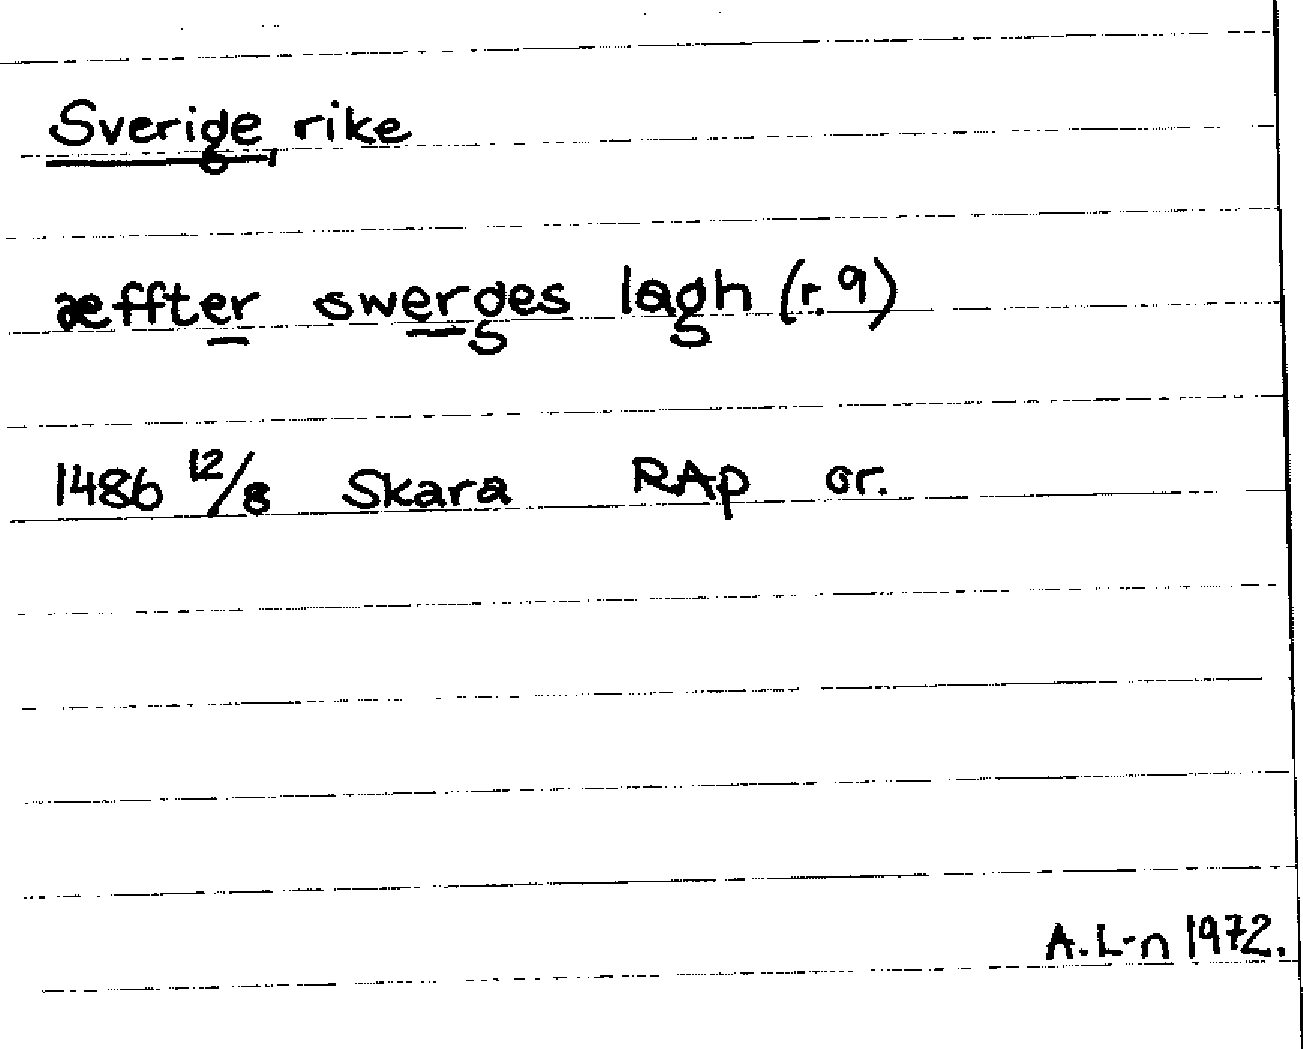 Sverige, rike
æffter swerges lagh (r. 9)
1486 12/8 Skara RAp or.
A. L-n 1972.